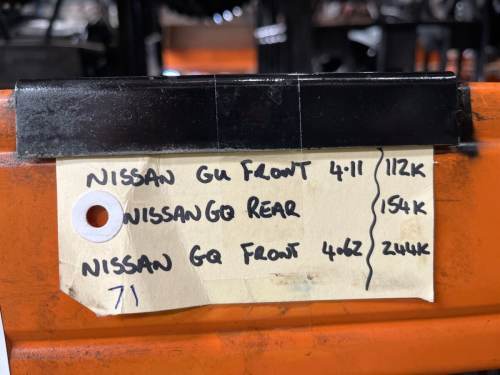 NISSAN GU FRONT 4.11 112K
NISSAN GQ REAR 154K
NISSAN GQ FRONT 4.62 244K
71